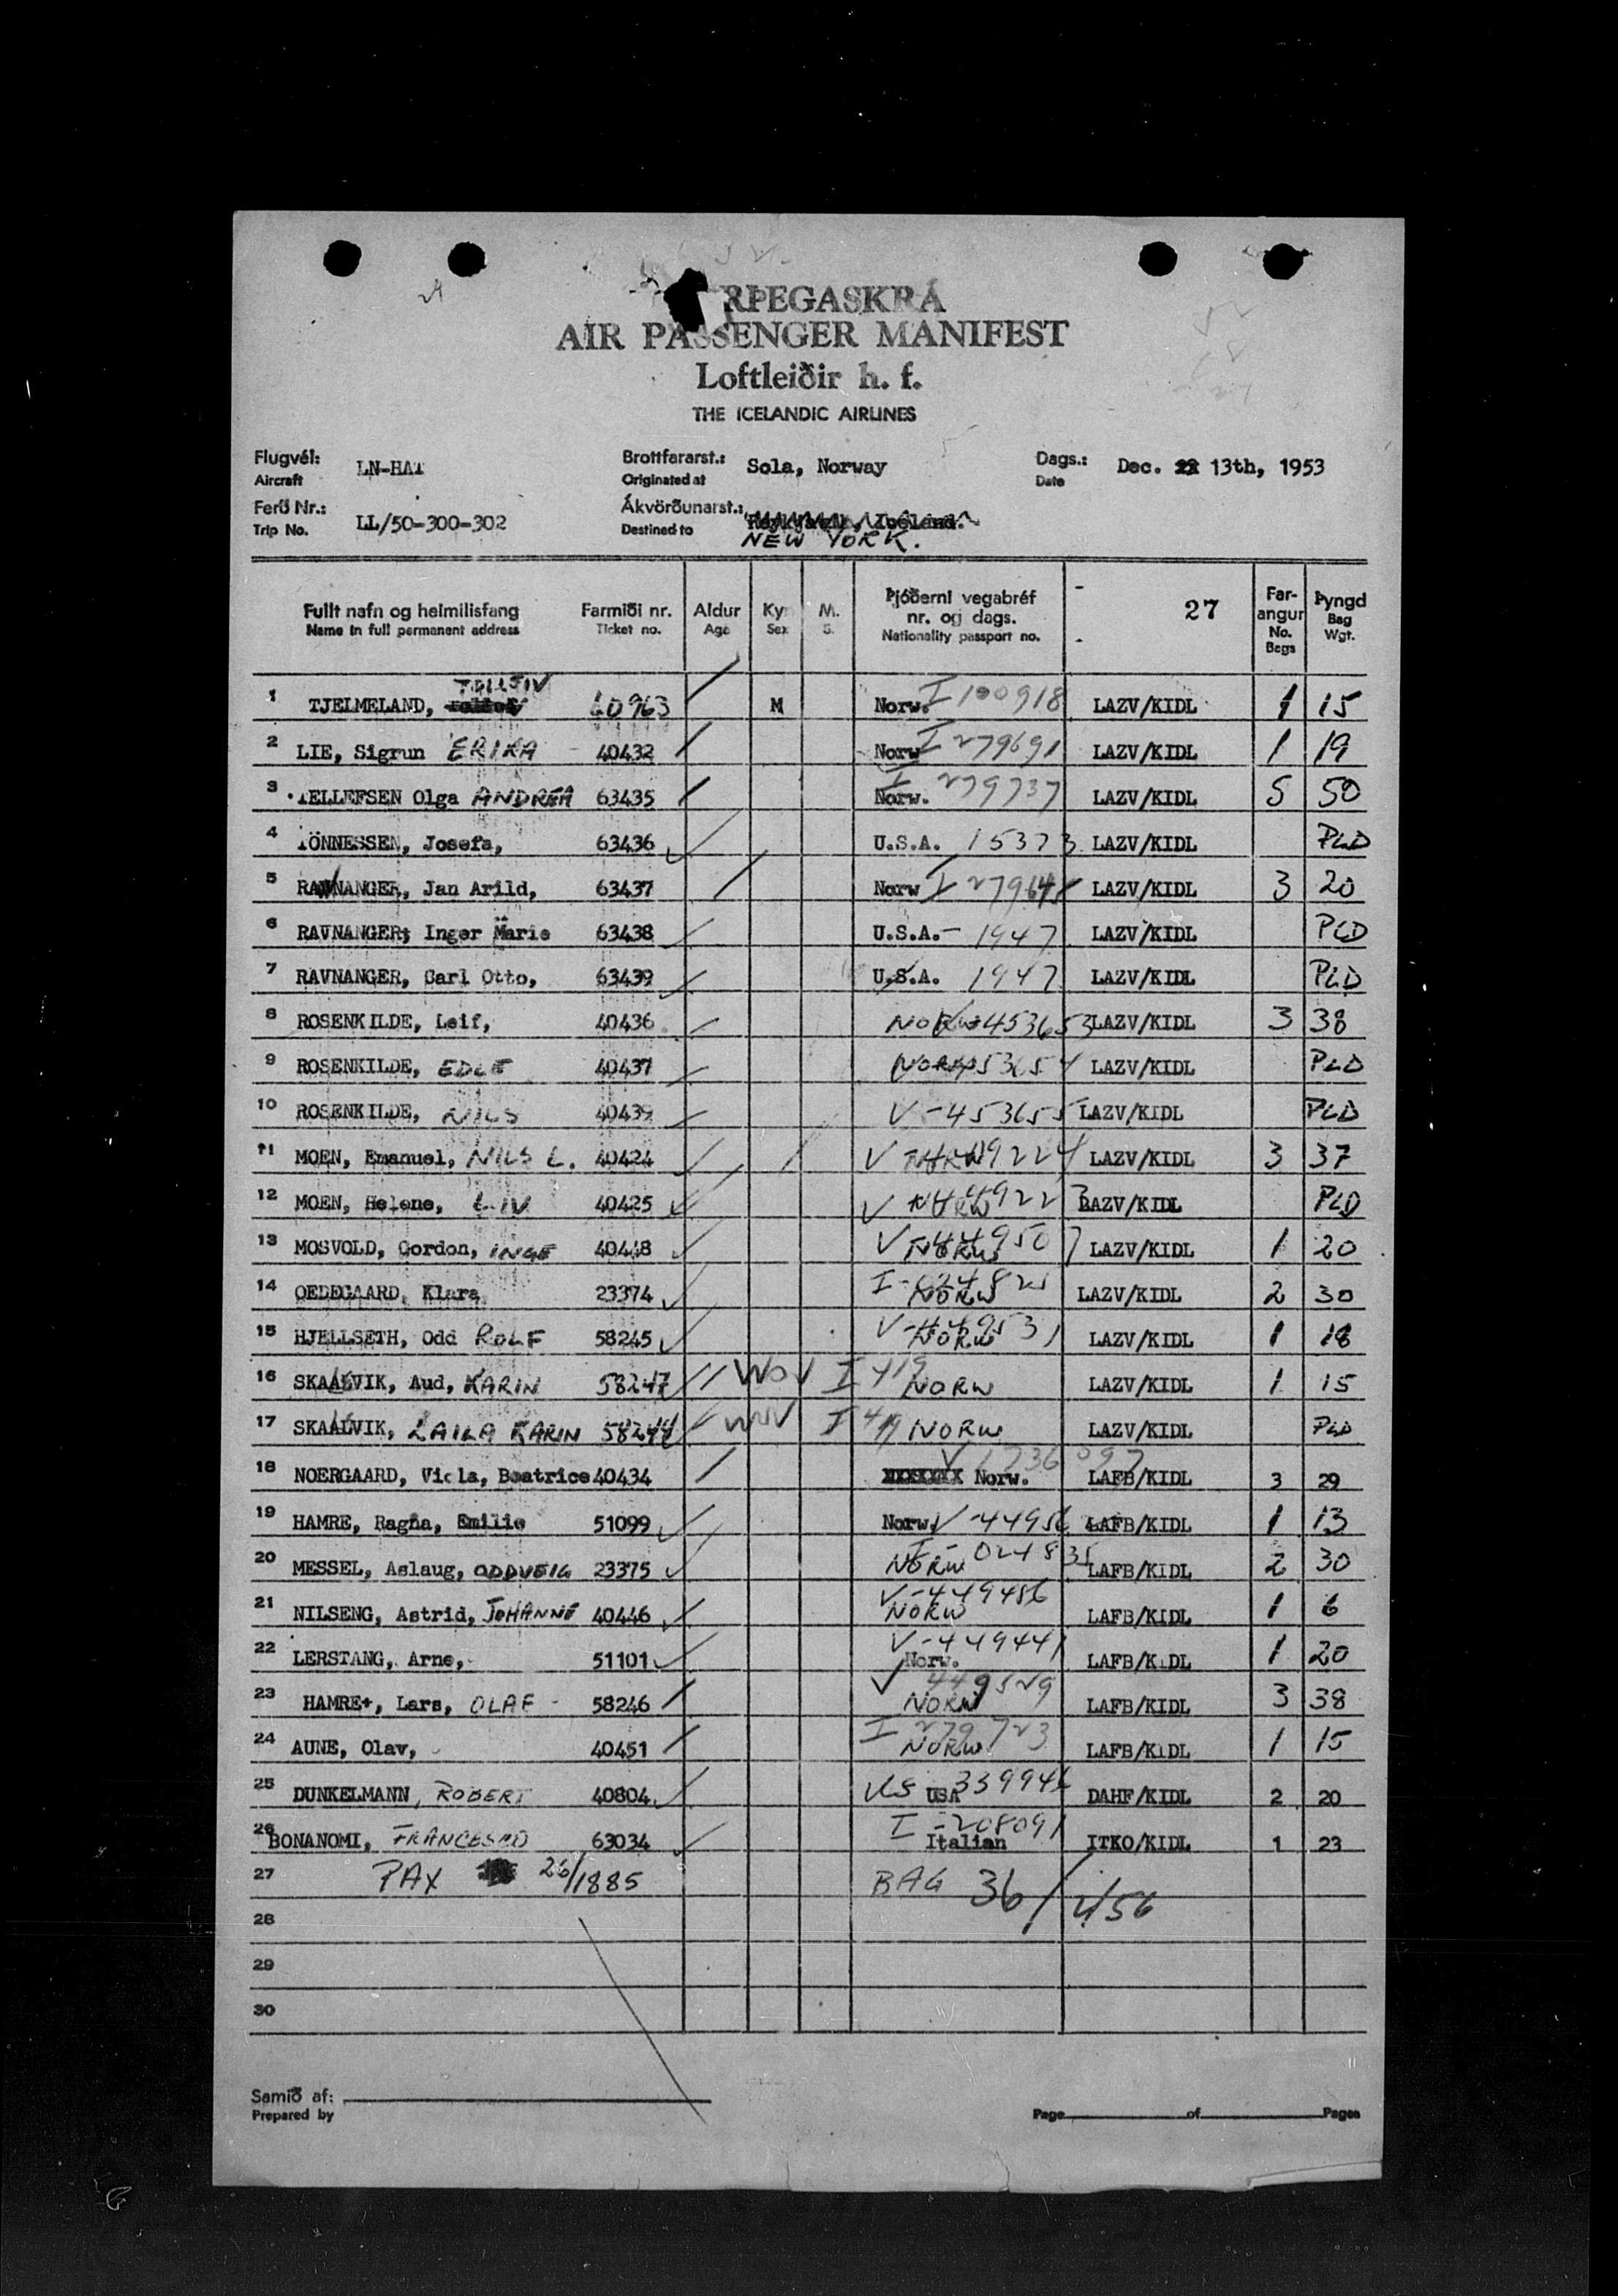 RÞEGASKRÁ
AIR PASSENGER MANIFEST
Loftleiðir h. f.
THE ICELANDIC AIRLINES
Flugvél: LN-HAT Brottfararst.: Sola, Norway Dags.: Dec. 13th, 1953
Aircraft Originated at Date
Ferð Nr.: LL/50-300-302 Ákvörðunarst.: Reykjavik, Iceland.
Trip No. Destined to NEW YORK.
Fullt nafn og heimilisfang Farmiði nr. Aldur Ky M. Þjóðerni vegabréf nr. og dags. 27 Far-angur Þyngd
Name in full permanent address Ticket no. Age Sex S. Nationality passport no. No. Begs Bag Wgt.
1 TJELMELAND, TOLLEIV 40963 M Norw. I 100918 LAZV/KIDL 1 15
2 LIE, Sigrun ERIKA 40432 Norw I 279691 LAZV/KIDL 1 19
3 TELLEFSEN Olga ANDREA 63435 Norw. I 279737 LAZV/KIDL 5 50
4 TÖNNESSEN, Josefa, 63436 U.S.A. 15373 LAZV/KIDL PLD
5 RAVNANGER, Jan Arild, 63437 Norw I LAZV/KIDL 3 20
6 RAVNANGER; Inger Marie 63438 U.S.A.- 1947 LAZV/KIDL PLD
7 RAVNANGER, Carl Otto, 63439 U.S.A. 1947 LAZV/KIDL PLD
8 ROSENKILDE, Leif, 40436 NORW 453653 LAZV/KIDL 3 38
9 ROSENKILDE, EDLE 40437 NORW 453654 LAZV/KIDL PLD
10 ROSENKILDE, NILS 40439 V-453655 LAZV/KIDL PLD
11 MOEN, Emanuel, NILS L. 40424 V NORW 449224 LAZV/KIDL 3 37
12 MOEN, Helene, LIV 40425 V NORW 449223 LAZV/KIDL PLD
13 MOSVOLD, Gordon, INGE 40448 V-449507 NORW LAZV/KIDL 1 20
14 OEDEGAARD, Klara 23374 I-024821 NORW LAZV/KIDL 2 30
15 HJELLSETH, Odd ROLF 58245 V-449531 NORW LAZV/KIDL 1 18
16 SKAALVIK, Aud, KARIN 58247 WOV I 419 NORW LAZV/KIDL 1 15
17 SKAALVIK, LAILA KARIN 58244 I 419 NORW LAZV/KIDL PLD
18 NOERGAARD, Viola, Beatrice 40434 XXXXXXX Norw. V 1736097 LAFB/KIDL 3 29
19 HAMRE, Ragna, Emilie 51099 Norw. V-44956 LAFB/KIDL 1 13
20 MESSEL, Aslaug, ODDVEIG 23375 I-024835 NORW LAFB/KIDL 2 30
21 NILSENG, Astrid, JOHANNE 40446 V-449486 NORW LAFB/KIDL 1 6
22 LERSTANG, Arne, 51101 V-449441 Norw. LAFB/KIDL 1 20
23 HAMRE+, Lars, OLAF - 58246 V 449529 NORW LAFB/KIDL 3 38
24 AUNE, Olav, 40451 I 279723 NORW LAFB/KIDL 1 15
25 DUNKELMANN, ROBERT 40804 US 339946 USA DAHF/KIDL 2 20
26 BONANOMI, FRANCESCO 63034 I-208091 Italian ITKO/KIDL 1 23
27 PAX 26/1885 BAG 36/456
28
29
30
Samið af:
Prepared by Page of Pages